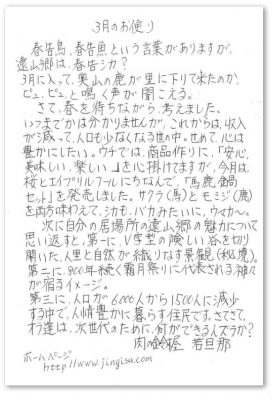 3月のお便り
春告鳥、春告魚という言葉がありますが、
遠山郷は、春告シカ?
3月に入って、奥山の鹿が里に下りて来たのか、
ピュ、ピュ、と鳴く声が聞こえる。
さて、春を待ちながら、考えました。
いつまでかは分かりませんが、これからは、収入
が減って、人口も少なくなる世の中。せめて、心は
豊かにしたい。ウチでは、商品作りに、「安心、
美味しい、楽しい。」を心掛けてますが、今月は、
桜とエイプリルフールにちなんで、「馬鹿鍋
セット」を発売しました。サクラ(馬)とモミジ(鹿)
を両方味わえて、シカも、バカみたいに、ウィカ〜。
次に自分の居場所の遠山郷の魅力について
思い返すと、第一に、V字型の険しい谷を切り
開いた、人里と自然が織りなす景観(秘境)。
第二に、800年続く霜月祭りに代表される、神々
が宿るイメージ。
第三に、人口が6000人から1500人に減少
する中で、人情豊かに暮らす住民です。さてさて、
オラ達は、次世代のために、何ができるんズラか?
肉の鈴木屋 若旦那
ホームページ
http://www.jingisu.com